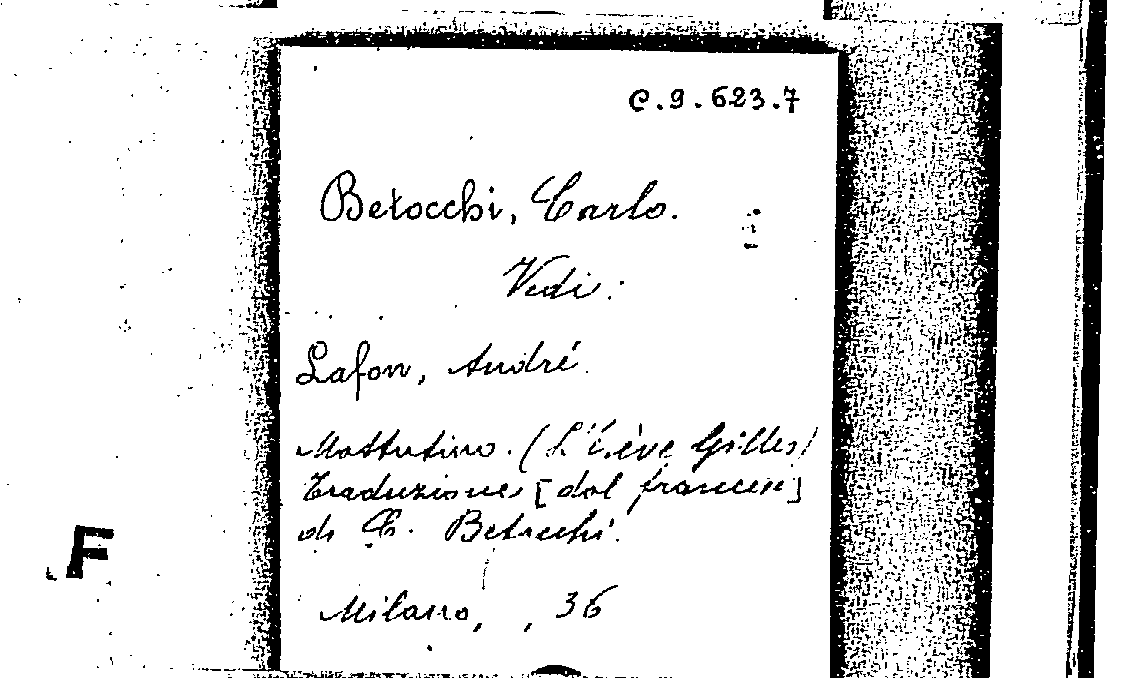 C.9.623.7
Betocchi, Carlo.
Vedi:
Lafon, André.
Mattutino. (L'Elève Gilles)
Traduzione [dal francese]
di C. Betocchi.
F
Milano, , 36